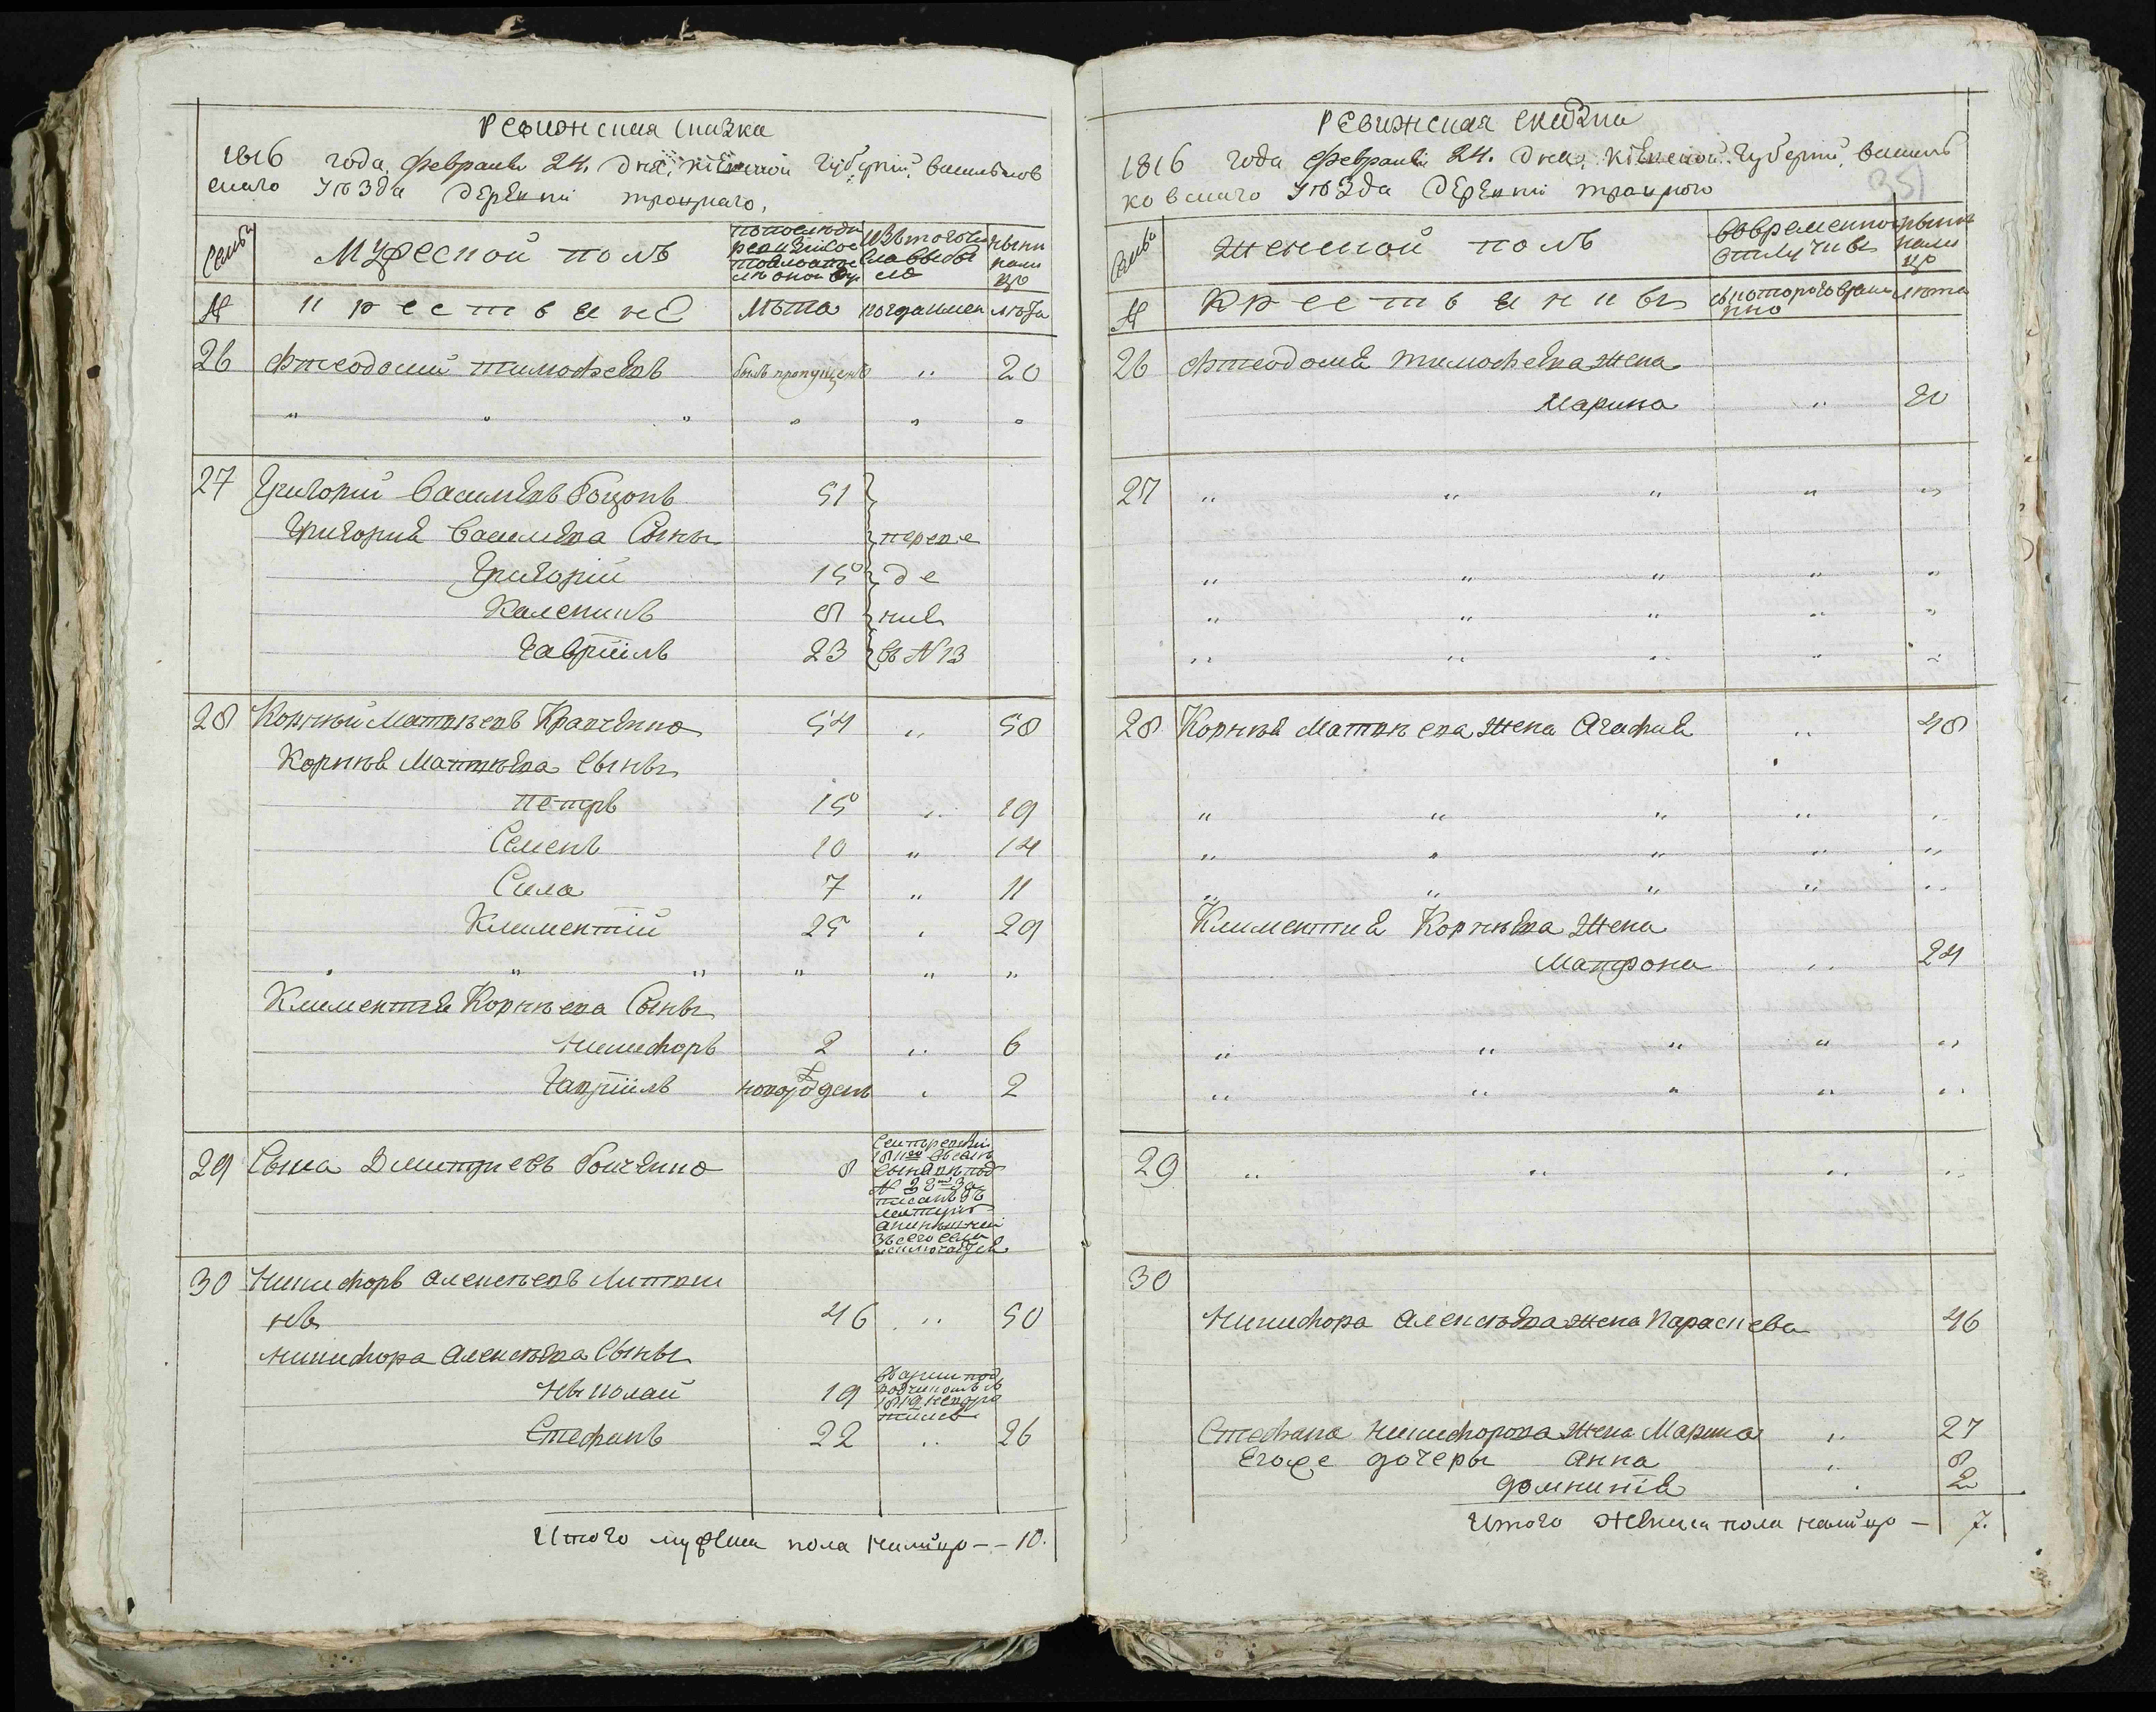 Ревижская сказка
1816 года, февраля 24. дня, Кіевской губерніи, Васильков
скаго уѣзда деревни Троцкаго,
Семьи
Мужеской полъ
по последн
ревизіи со
стояло и по
слѣ оной
изъ того чи
сла выбы
ло
ныни
нали
цо
№
крестьяне
лѣта
когда имен
лѣта
26 Фтеодосий Тимофеевъ былъ пропущенъ " 20
" " " " " "
27 Григорий Васильевъ Боцонъ 51
Григория Васильева Сыны
Григорій 15
Каленикъ 8
Гавріилъ 23
переве
де
ния
въ № 13
28 Корнѣй Матвѣевъ Кравченко 54 " 58
Корнѣя Матвѣева Сыны
Петръ 15 " 19
Семенъ 10 " 14
Сила 7 " 11
Климентій 25 " 29
" " " " " "
Климентия Корнѣева Сыны
Никифоръ 2 " 6
Гавріилъ новорожденъ " 2
29 Савка Дмитриевъ Бойченко 8
30 Никифоръ Алексѣевъ Литвин
нъ 46 " 50
Никифора Алексѣева Сыны
Николай 19
Стефанъ 22 " 26
Итого мужеска пола налицо - - 10.
Ревижская сказка
1816 года февраля 24. дня, Кіевской губерніи, Василь
ковскаго уѣзда деревни Троцкого
351
Семьи
Женской полъ
во временной
отлучки
ныни
нали
цо
№
Крестьянки
съ которого време
нно
лѣта
26 Фтеодосия Тимофеева жена
Марина " 20
27 " " " " "
" " " " "
" " " " "
" " " " "
28 Корнѣя Матвѣева жена Агафия " 48
" " " " "
" " " " "
" " " " "
Климентия Корнѣева жена
Матрона " 24
" " " " "
" " " " "
29 " " " "
30
Никифора Алексѣева жена Параскева 46
Стефана Никифорова жена Марина " 27
Егоже дочеры Анна " 8
Домникія " 2
Итого женска пола налицо - 7.